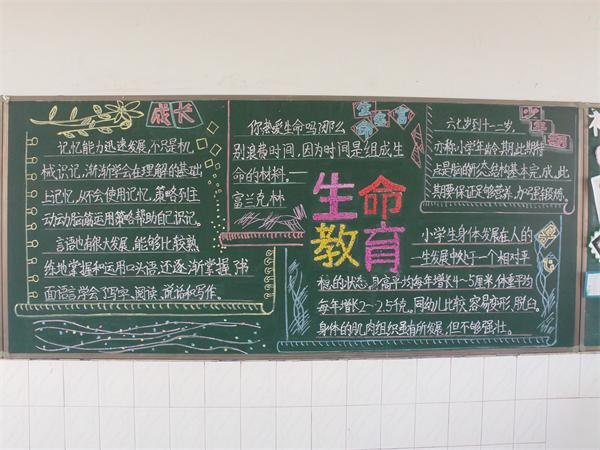 成长
记忆能力迅速发展,不只是机
械识记,渐渐学会在理解的基础
上记忆,从不会使用记忆,策略到主
动动脑筋运用策略帮助自己识记。
言语也有很大发展,能够比较熟
练地掌握和运用口头语,还逐渐掌握了书
面语言,学会了写字、阅读、说话和写作。
你老爱生命吗?那么
别浪费时间,因为时间是组成生
命的材料,——
富兰克林
生命
教育
六七岁到十一二岁,
亦称小学生龄期,此期特
点是脑的形态结构基本完成,此
期要保证足够营养,加强锻炼。
小学生身体发展在人的
一生发展中处于一个相对平
稳的状态,身高平均每年增长4~5厘米,体重平均
每年增长2~2.5千克。同幼儿比较,容易变形,脱臼。
身体的肌肉组织虽有所发展,但不够强壮。